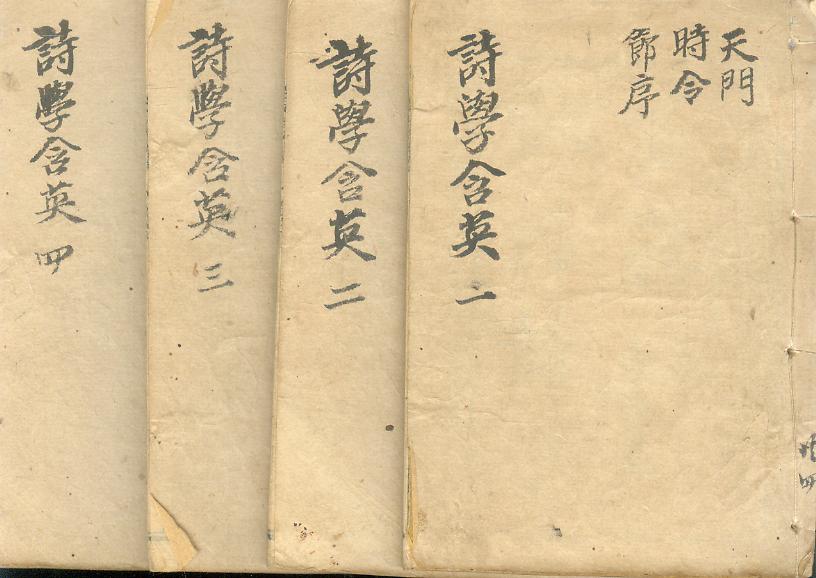 天門
時令
節序
詩學含英 一
詩學含英 二
詩學含英 三
詩學含英 四